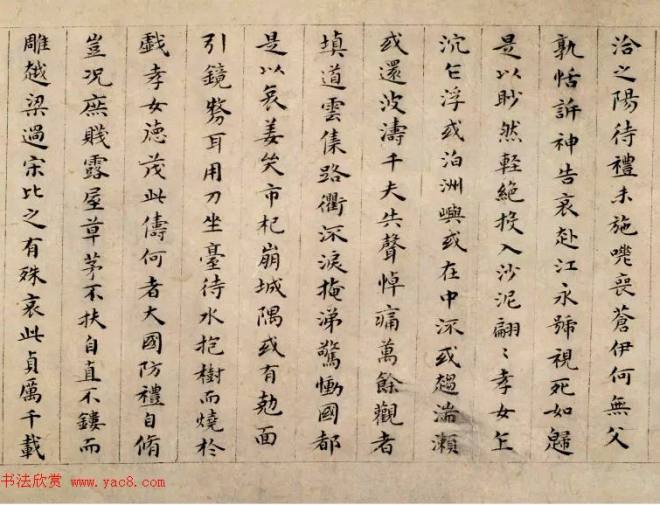 洽之陽待禮未施嗟喪蒼伊何無父
孰怙訴神告哀赴江永號視死如歸
是以眇然輕絕投入沙泥翩〻孝女乍
沉乍浮或泊洲嶼或在中流或趨湍瀨
或還波濤千夫失聲悼痛萬餘觀者
填道雲集路衢流淚掩涕驚慟國都
是以哀姜哭市杞崩城隅或有勊面
引鏡剺耳用刀坐臺待水抱樹而燒於
戲孝女德茂此儔何者大國防禮自脩
豈況庶賤露屋草茅不扶自直不鏤而
雕越梁過宋比之有殊哀此貞厲千載
书法欣赏 www.yac8.com